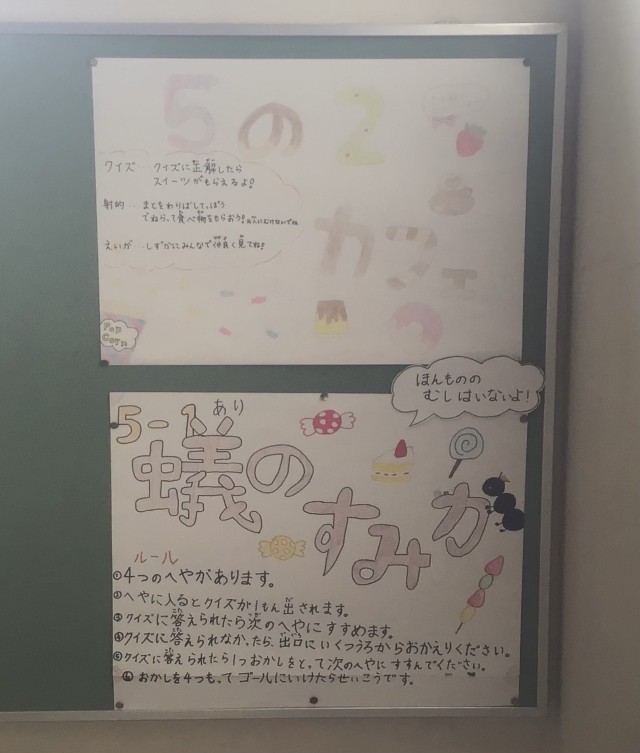 5の2
カフェ
クイズ‥クイズに正解したら
スイーツがもらえるよ!
射的‥まとをわりばしてっぽう
でねらって食べ物をもらおう!
えいが‥しずかにみんなで仲良く見てね!
Pop
Corn
ほんものの
むしはいないよ!
5-1
あり
蟻の
すみか
ルール
①4つのへやがあります。
②へやに入るとクイズが1もん出されます。
③クイズに答えられたら次のへやにすすめます。
④クイズに答えられなかったら、出口にいくつうろからおかえりください。
⑤クイズに答えられたら1つおかしをとって次のへやにすすんでください。
⑥おかしを4つもってゴールにいけたらせいこうです。